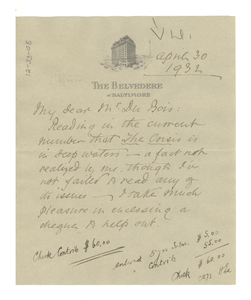 April 30
1932
THE BELVEDERE
BALTIMORE
My dear Mr Du Bois:
Reading in the current
number that The Crisis is
in deep waters — a fact not
realized by me, though I've
not failed to read any of
its issues — I take much
pleasure in enclosing a
cheque to help out.
Check Contrib $60.00
entered 5 yr Subs. $5.00
Contrib 55.00
Check $60.00